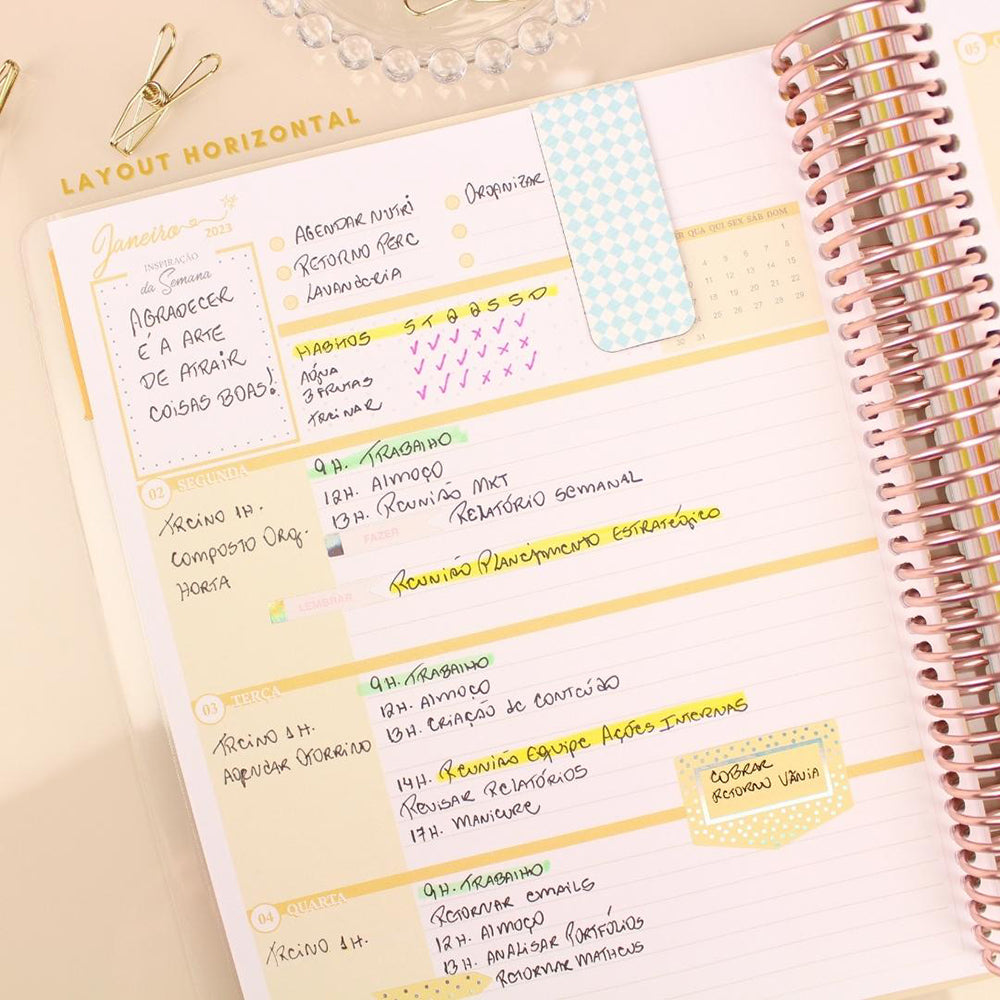 LAYOUT HORIZONTAL
Janeiro
2023
INSPIRAÇÃO
da Semana
AGRADECER
É A ARTE
DE ATRAIR
COISAS BOAS!
AGENDAR NUTRI
RETORNO PERC
LAVANDERIA
ORGANIZAR
HÁBITOS S T Q Q S S D
ÁGUA
3 FRUTAS
TREINAR
QUA QUI SEX SÁB DOM
1
4 5 6 7 8
11 12 13 14 15
18 19 20 21 22
25 26 27 28 29
30 31
02 SEGUNDA
TREINO 1H.
COMPOSTO ORG.
HORTA
9H. TRABALHO
12H. ALMOÇO
13H. REUNIÃO MKT
RELATÓRIO SEMANAL
FAZER
REUNIÃO PLANEJAMENTO ESTRATÉGICO
LEMBRAR
03 TERÇA
TREINO 1H.
AGENDAR OTORRINO
9H. TRABALHO
12H. ALMOÇO
13H. CRIAÇÃO DE CONTEÚDO
14H. REUNIÃO EQUIPE AÇÕES INTERNAS
REVISAR RELATÓRIOS
17H. MANICURE
COBRAR
RETORNO VÂNIA
04 QUARTA
TREINO 1H.
9H. TRABALHO
RETORNAR EMAILS
12H. ALMOÇO
13H. ANALISAR PORTFÓLIOS
RETORNAR MATHEUS
05